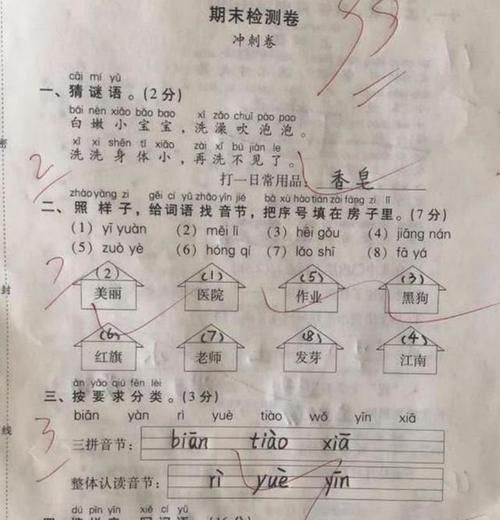 期末检测卷
99
冲刺卷
cāi mí yǔ
一、猜谜语。(2分)
bái nèn xiǎo bǎo bao xǐ zǎo chuī pào pao
白嫩小宝宝，洗澡吹泡泡。
xǐ xǐ shēn tǐ xiǎo zài xǐ bú jiàn le
洗洗身体小，再洗不见了。
2
打一日常用品：香皂
zhào yàng zi gěi cí yǔ zhǎo yīn jié bǎ xù hào tián zài fáng zi lǐ
二、照样子，给词语找音节，把序号填在房子里。(7分)
(1) yī yuàn (2) měi lì (3) hēi gǒu (4) jiāng nán
(5) zuò yè (6) hóng qí (7) lǎo shī (8) fā yá
7
(2) (1) (5) (3)
美丽 医院 作业 黑狗
(6) (7) (8) (4)
红旗 老师 发芽 江南
àn yāo qiú fēn lèi
三、按要求分类。(3分)
biān yàn rì yuè tiào wǒ yīn xiā
3
三拼音节： biān tiào xiā
整体认读音节： rì yuè yīn
dú pīn yīn xiě cí yǔ
密
封
线